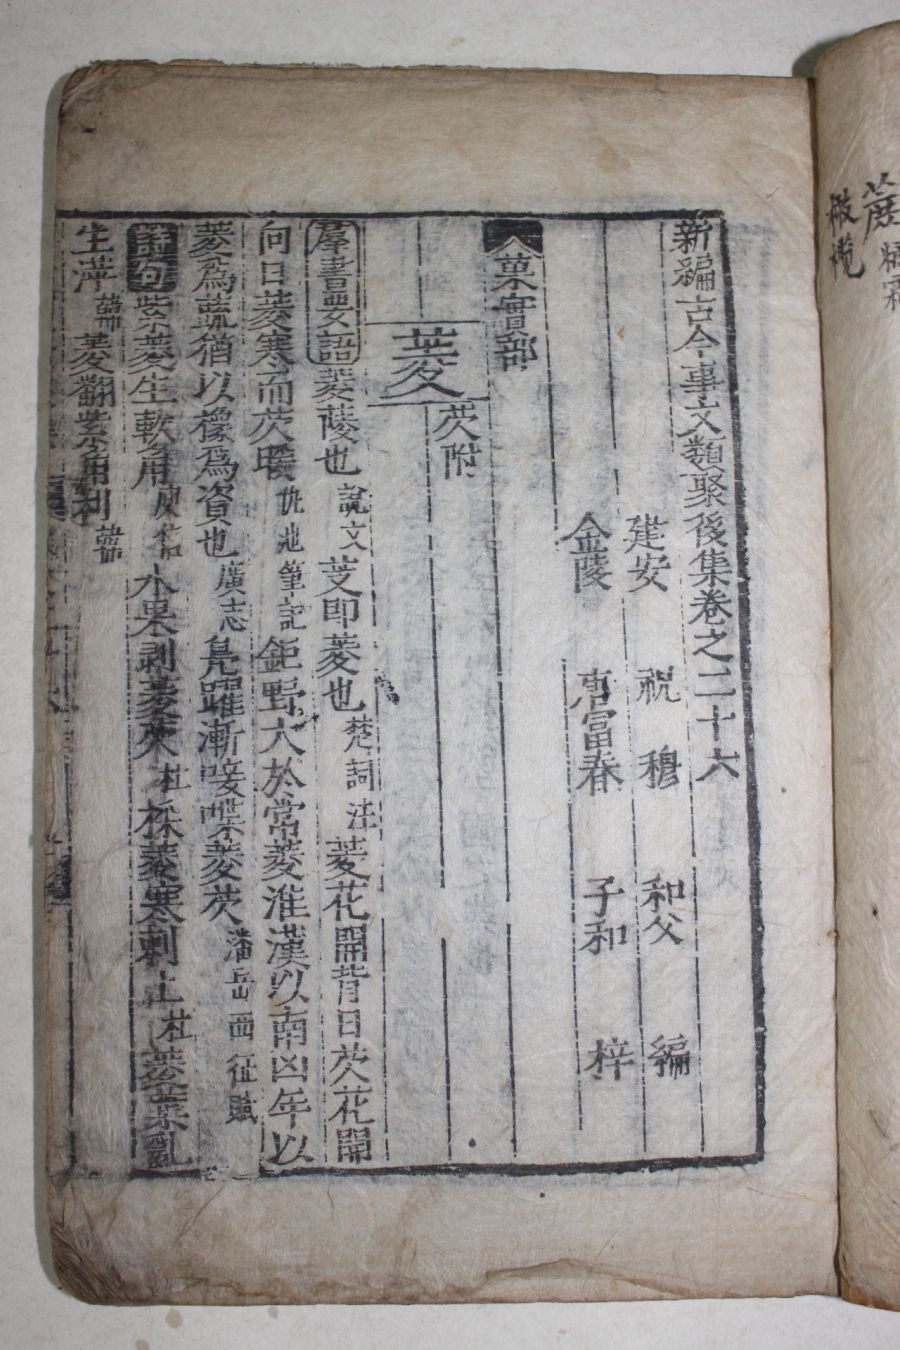 新編古今事文類聚後集卷之二十六
建安 祝 穆 和父 編
金陵 唐富春 子和 梓
菓實部
菱 芡附
羣書要語 菱蔆也說文芰即菱也楚詞注菱花開背日芡花開
向日菱寒而芡暖仇池筆記鉅野大於常菱淮漢以南凶年以
菱為蔬猶以橡為資也廣志鳧躍漸唼喋菱芡潘岳西征賦
紫菱生軟角 水果剥菱來杜採菱寒刺上杜菱葉亂
生萍 菱翻紫角利